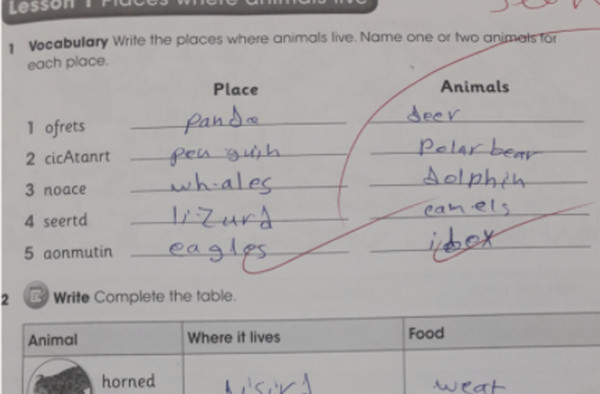 Lesson 1 Places where animals live
1 Vocabulary Write the places where animals live. Name one or two animals for
each place.
Place Animals
1 ofrets panda deer
2 cicAtanrt penguin Polar bear
3 noace whales dolphin
4 seertd lizurd camels
5 aonmutin eagles ibex
2 Write Complete the table.
Animal Where it lives Food
horned weat